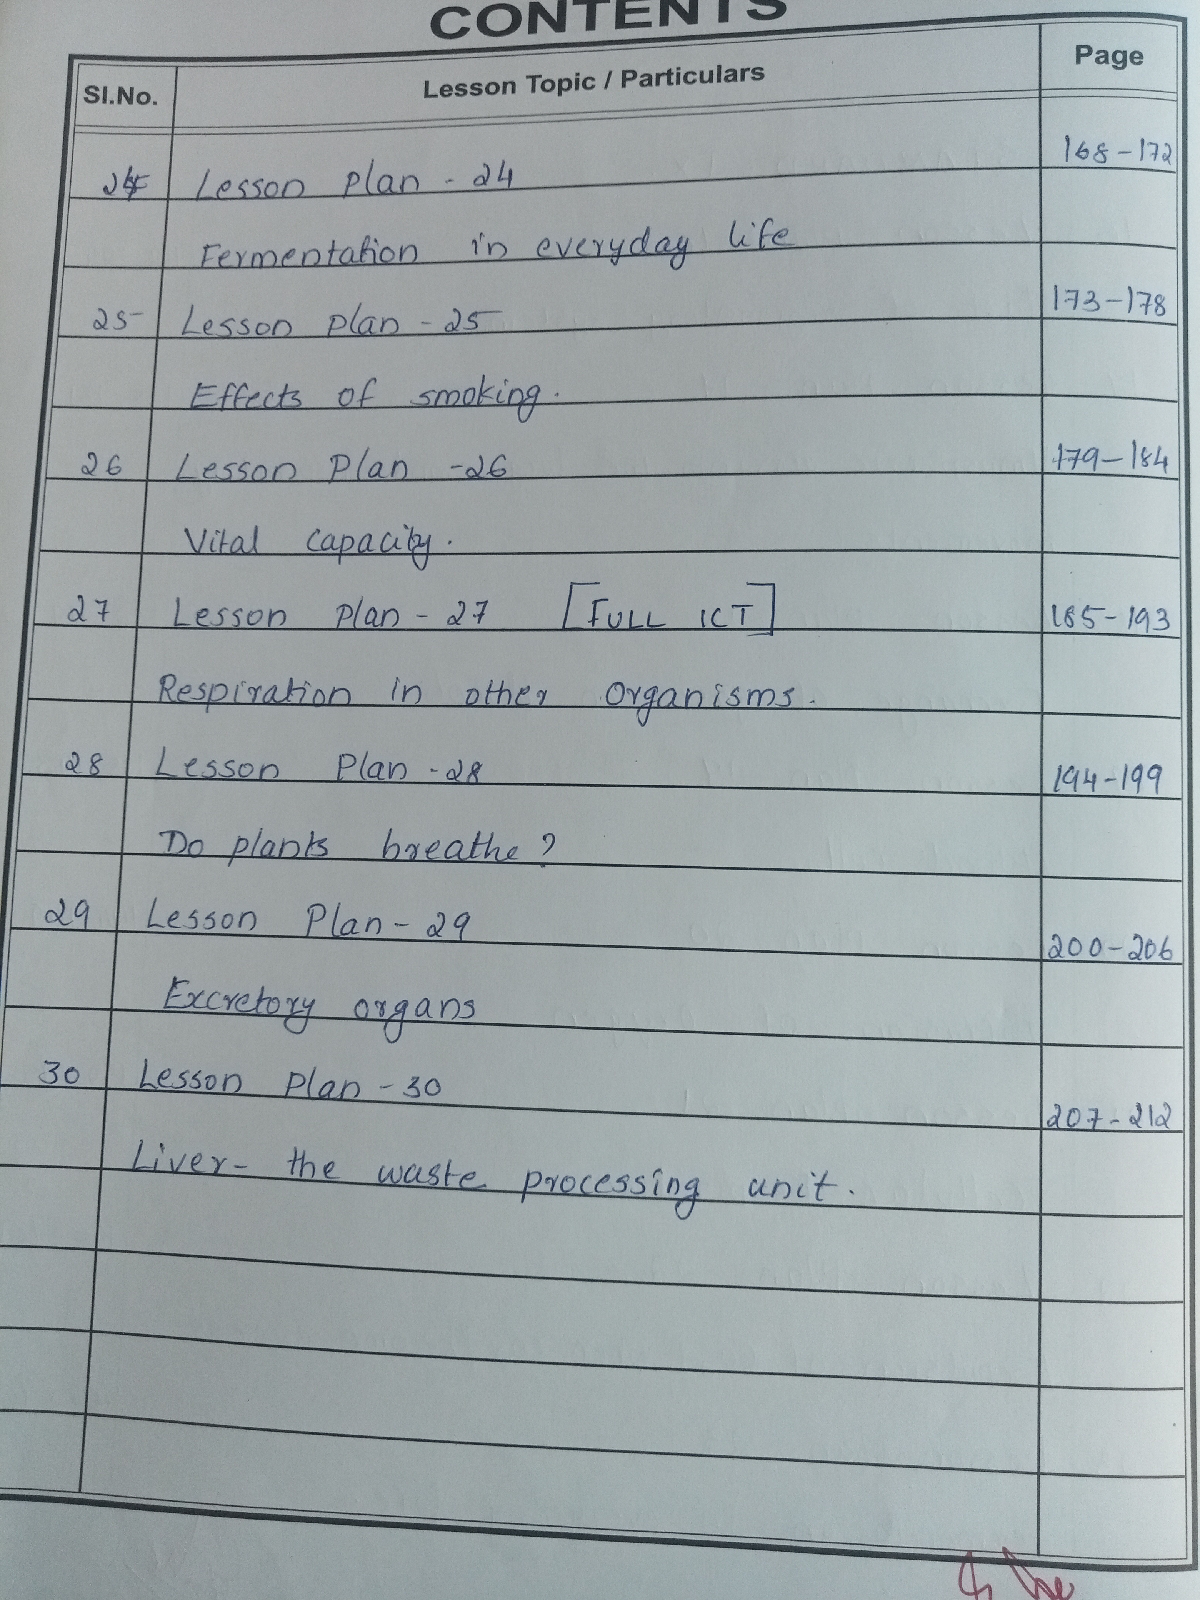 CONTENTS
Sl.No. Lesson Topic / Particulars Page
24 Lesson Plan - 24 168-172
Fermentation in everyday life
25 Lesson Plan - 25 173-178
Effects of smoking.
26 Lesson Plan -26 179-184
Vital capacity.
27 Lesson Plan - 27 [FULL ICT] 185-193
Respiration in other organisms.
28 Lesson Plan -28 194-199
Do plants breathe?
29 Lesson Plan - 29 200-206
Excretory organs
30 Lesson Plan - 30 207-212
Liver- the waste processing unit.